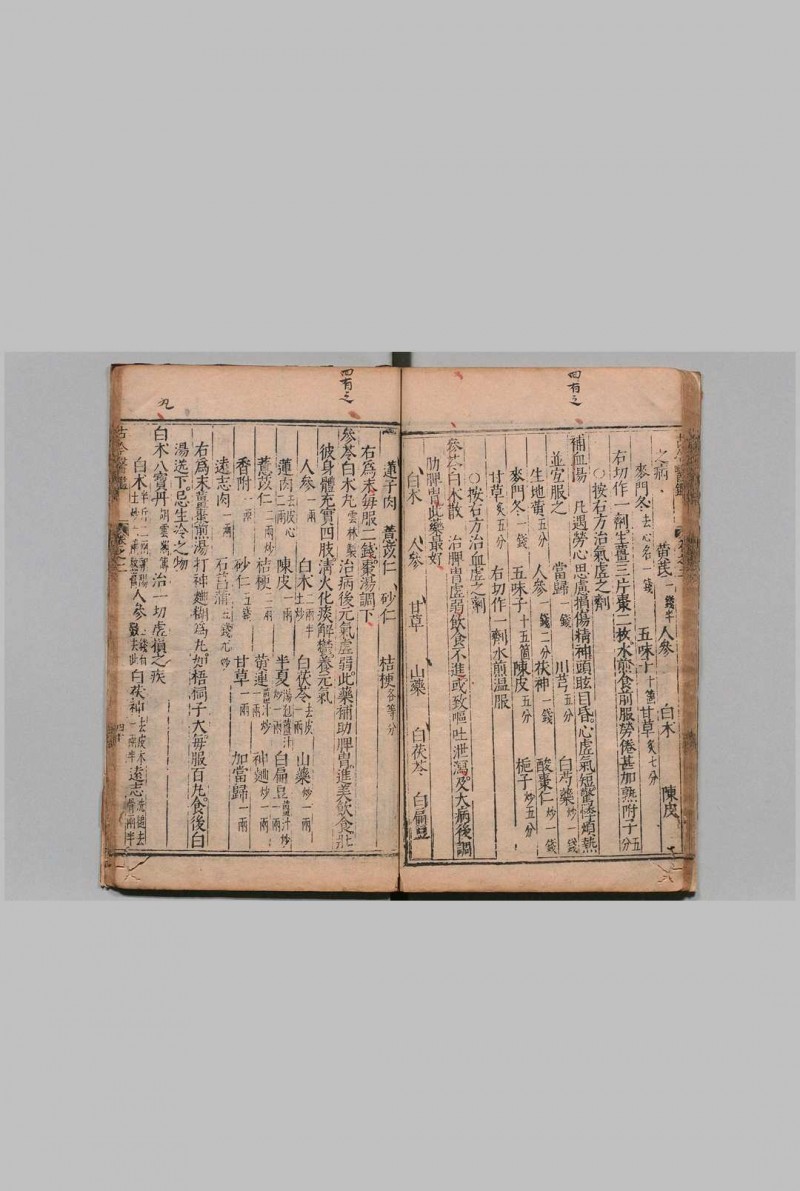 四有之
之病
黃芪一錢半 人參 白朮 陳皮
麥門冬去心各一錢 五味子十箇 甘草炙七分
右切作一劑生薑三片棗二枚水煎食前服勞倦甚加熟附子五分
○按右方治氣虛之劑
補血湯 凡遇勞心思慮損傷精神頭眩目昏心虛氣短驚悸煩熱
並宜服之 當歸一錢 川芎五分 白芍藥炒一錢
生地黃五分 人參一錢二分 茯神一錢 酸棗仁炒一錢
麥門冬一錢 五味子十五箇 陳皮五分 梔子炒五分
甘草炙五分 右切作一劑水煎溫服
○按右方治血虛之劑
參苓白朮散 治脾胃虛弱飲食不進或致嘔吐泄瀉及大病後調
助脾胃此藥最好
白朮 人參 甘草 山藥 白茯苓 白扁豆
四有之
蓮子肉 薏苡仁 砂仁 桔梗各等分
右為末每服二錢棗湯調下
參苓白朮丸雲林製 治病後元氣虛弱此藥補助脾胃進美飲食壯
彼身體充實四肢清火化痰解鬱養元氣
人參一兩 白朮二兩半土炒 白茯苓去皮一兩 山藥炒一兩
蓮肉去皮心一兩 陳皮一兩 半夏湯泡薑汁炒一兩 白扁豆薑汁炒一兩
薏苡仁二兩炒 桔梗一兩 黃連薑汁炒一兩 神麯炒一兩
香附一兩 砂仁五錢 甘草一兩 加當歸一兩
遠志肉一兩 石菖蒲五錢
右為末薑棗煎湯打神麯糊為丸如梧桐子大每服百丸食後白
湯送下忌生冷之物
丸
白朮八寶丹 治一切虛損之疾
白朮 人參 白茯神去皮木一兩半 遠志
古今醫鑑